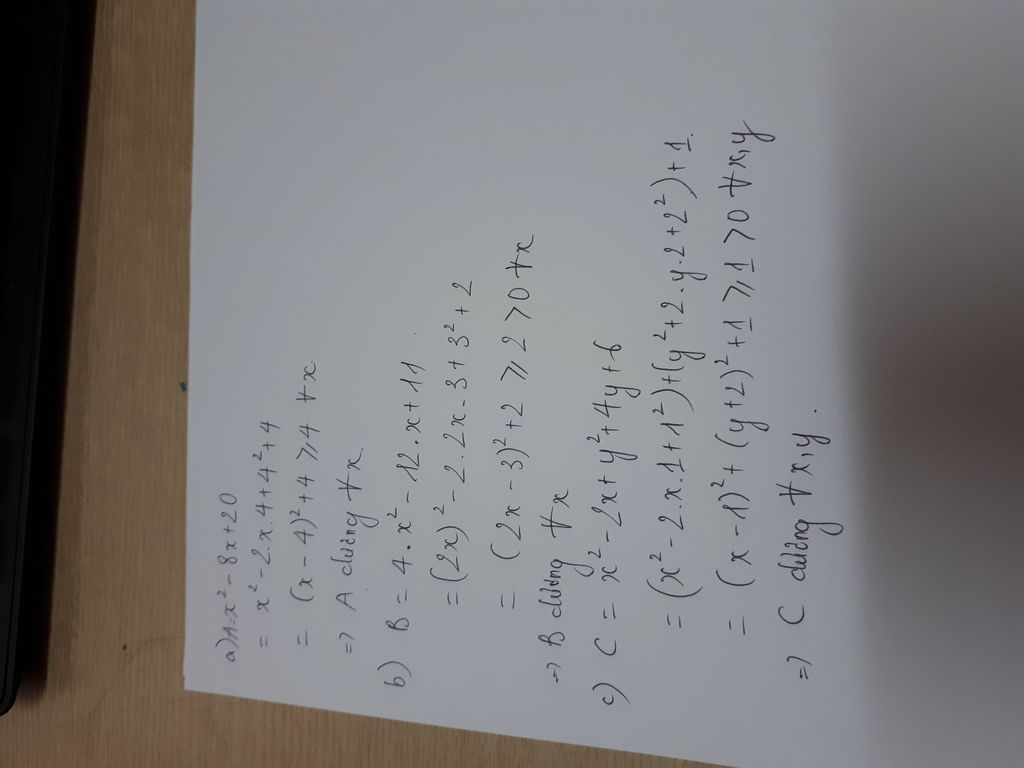 a) A = x² - 8x + 20
= x² - 2x.4 + 4² + 4
= (x - 4)² + 4 ⩾ 4 ∀x
=> A dương ∀x.
b) B = 4.x² - 12.x + 11
= (2x)² - 2.2x.3 + 3² + 2
= (2x - 3)² + 2 ⩾ 2 > 0 ∀x
=> B dương ∀x
c) C = x² - 2x + y² + 4y + 6
= (x² - 2.x.1 + 1²) + (y² + 2.y.2 + 2²) + 1.
= (x - 1)² + (y + 2)² + 1 ⩾ 1 > 0 ∀x,y
=> C dương ∀x,y.